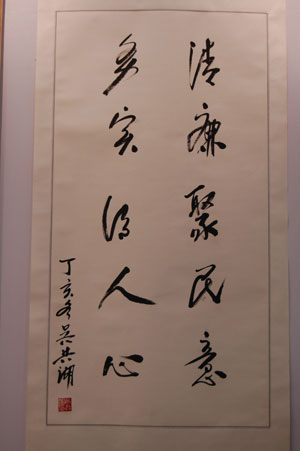 清廉聚民意
务实得人心
丁亥冬吴共湖